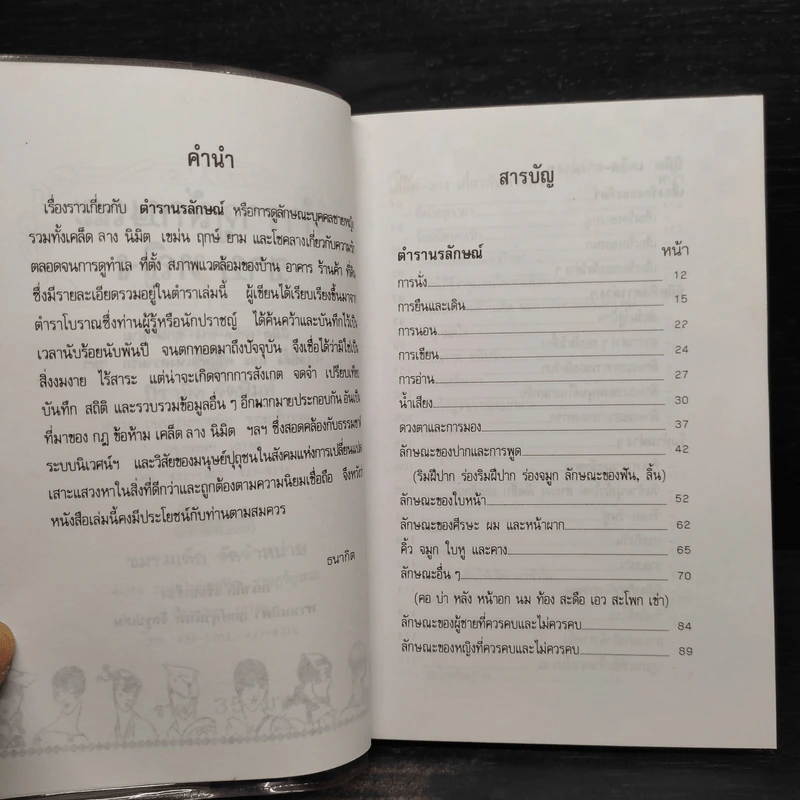 คำนำ
เรื่องราวเกี่ยวกับ ตำรานรลักษณ์ หรือการดูลักษณะบุคคลชายหญิง
รวมทั้งเคล็ด ลาง นิมิต เขม่น ฤกษ์ ยาม และโชคลางเกี่ยวกับความ
ตลอดจนการดูทำเล ที่ตั้ง สภาพแวดล้อมของบ้าน อาคาร ร้านค้า ที่ดิน
ซึ่งมีรายละเอียดรวมอยู่ในตำราเล่มนี้ ผู้เขียนได้เรียบเรียงขึ้นมาจาก
ตำราโบราณซึ่งท่านผู้รู้หรือนักปราชญ์ ได้ค้นคว้าและบันทึกไว้เป็น
เวลานับร้อยนับพันปี จนตกทอดมาถึงปัจจุบัน จึงเชื่อได้ว่ามิใช่เป็น
สิ่งงมงาย ไร้สาระ แต่น่าจะเกิดจากการสังเกต จดจำ เปรียบเทียบ
บันทึก สถิติ และรวบรวมข้อมูลอื่น ๆ อีกมากมายประกอบกัน อันเป็น
ที่มาของ กฎ ข้อห้าม เคล็ด ลาง นิมิต ฯลฯ ซึ่งสอดคล้องกับธรรมชาติ
ระบบนิเวศน์ฯ และวิสัยของมนุษย์ปุถุชนในสังคมแห่งการเปลี่ยนแปลง
เสาะแสวงหาในสิ่งที่ดีกว่าและถูกต้องตามความนิยมเชื่อถือ จึงหวังว่า
หนังสือเล่มนี้คงมีประโยชน์กับท่านตามสมควร
ธนากิต
สารบัญ
ตำรานรลักษณ์ หน้า
การนั่ง 12
การยืนและเดิน 15
การนอน 22
การเขียน 24
การอ่าน 27
น้ำเสียง 30
ดวงตาและการมอง 37
ลักษณะของปากและการพูด 42
(ริมฝีปาก ร่องริมฝีปาก ร่องจมูก ลักษณะของฟัน, ลิ้น)
ลักษณะของใบหน้า 52
ลักษณะของศีรษะ ผม และหน้าผาก 62
คิ้ว จมูก ใบหู และคาง 65
ลักษณะอื่น ๆ 70
(คอ บ่า หลัง หน้าอก นม ท้อง สะดือ เอว สะโพก เข่า)
ลักษณะของผู้ชายที่ควรคบและไม่ควรคบ 84
ลักษณะของหญิงที่ควรคบและไม่ควรคบ 89